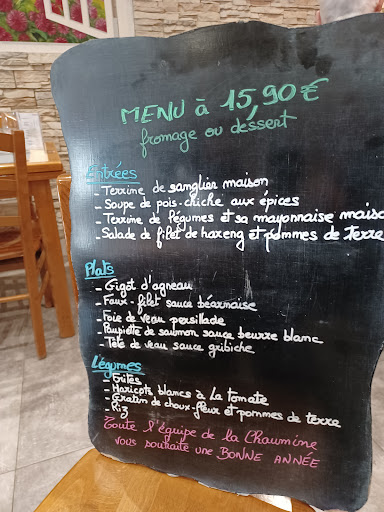 MENU à 15,90€
fromage ou dessert
Entrées
- Terrine de sanglier maison
- Soupe de pois-chiche aux épices
- Terrine de légumes et sa mayonnaise maiso
- Salade de filet de hareng et pommes de terre
Plats
- Gigot d'agneau
- Faux-filet sauce béarnaise
- Foie de veau persillade
- Paupiette de saumon sauce beurre blanc
- Tête de veau sauce gribiche
Légumes
- Frites
- Haricots blancs à la tomate
- Gratin de choux-fleur et pommes de terre
- Riz
Toute l'équipe de la Chaumine
vous souhaite une BONNE ANNÉE